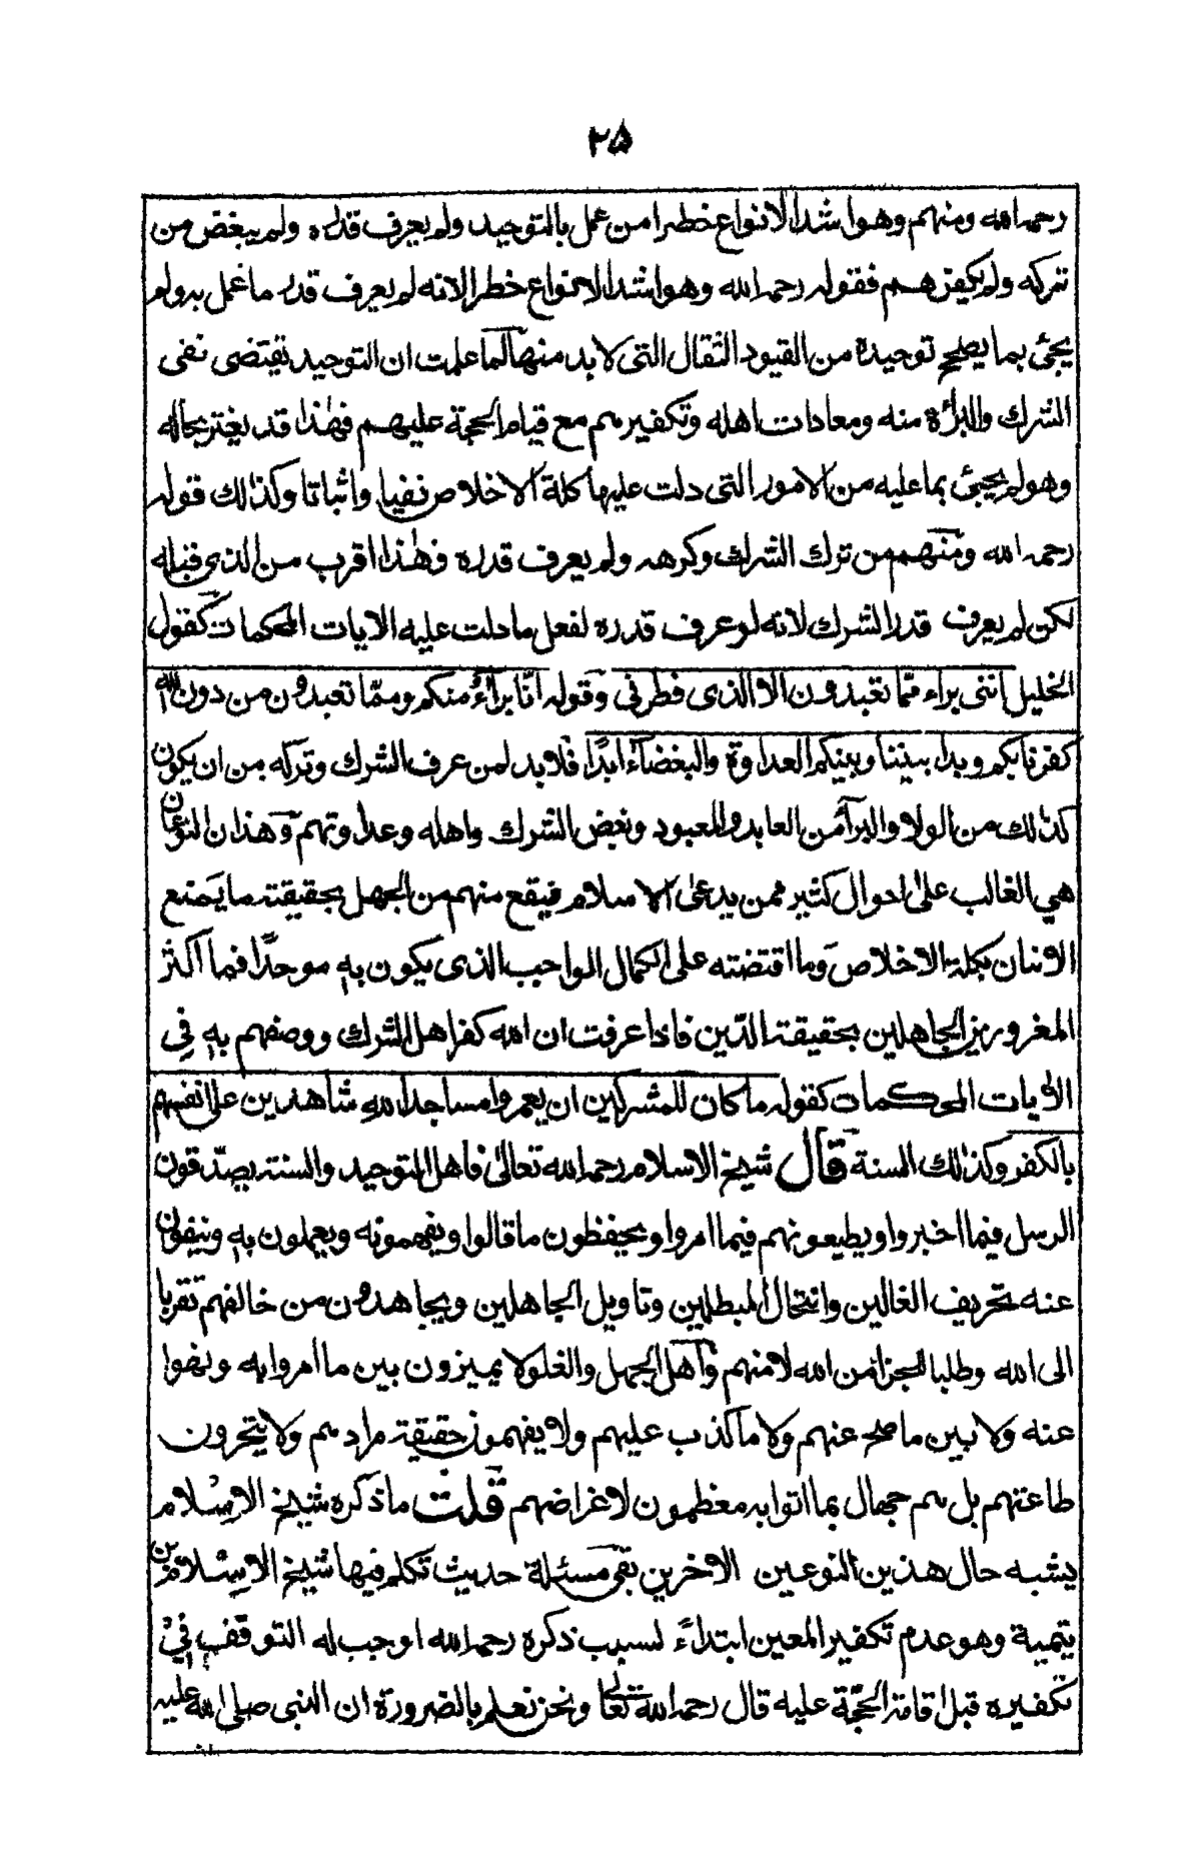 ٢٥
رحمه الله ومنهم وهو اشد الانواع خطرا من عمل بالتوحيد ولم يعرف قدره ولم يبغض من
تركه ولم يكفرهم فقوله رحمه الله وهو اشد الانواع خطرا لانه لم يعرف قدر ما عمل به ولم
يجئ بما يصلح توحيده من القيود الثقال التى لا بد منها لما علمت ان التوحيد يقتضى نفى
الشرك والبرأة منه ومعادات اهله وتكفيرهم مع قيام الحجة عليهم فهذا قد يغتر بحاله
وهو لم يجئ بما عليه من الامور التى دلت عليها كلمة الاخلاص نفيا واثباتا وكذالك قوله
رحمه الله ومنهم من ترك الشرك وكرهه ولم يعرف قدره فهذا اقرب من الذى قبله
لكن لم يعرف قدر الشرك لانه لو عرف قدره لفعل ما دلت عليه الايات المحكمات كقول
الخليل اننى براء مّما تعبدون الا الذى فطرنى وقوله انّا برآءُ منكم وممّا تعبدون من دون الله
كفرنا بكم وبدا بيننا وبينكم العداوة والبغضآء ابدًا فلا بد لمن عرف الشرك وتركه من ان يكون
كذلك من الولا والبرآ من العابد والمعبود وبغض الشرك واهله وعداوتهم وهذان النوعان
هي الغالب على احوال كثير ممن يدعى الاسلام فيقع منهم من الجهل بحقيقته ما يمنع
الاتيان بكلمة الاخلاص وما اقتضته على الكمال الواجب الذى يكون به موحدًا فما اكثر
المغرورين الجاهلين بحقيقة الدّين فاذا عرفت ان الله كفر اهل الشرك ووصفهم به فى
الايات المحكمات كقوله ما كان للمشركين ان يعمروا مساجد الله شاهدين على انفسهم
بالكفر وكذلك السنة قال شيخ الاسلام رحمه الله تعالى فاهل التوحيد والسنة يصدّقون
الرسل فيما اخبروا ويطيعونهم فيما امروا ويحفظون ما قالوا ويفهمونه ويعملون به وينفون
عنه تحريف الغالين وانتحال المبطلين وتاويل الجاهلين ويجاهدون من خالفهم تقربا
الى الله وطلبا للجزا من الله لا منهم واهل الجهل والغلو لا يميزون بين ما امروا به ونهوا
عنه ولا بين ما صح عنهم ولا ما كذب عليهم ولا يفهمون حقيقة مرادهم ولا يتحرون
طاعتهم بل هم جهال بما اتوا به معظمون لاغراضهم قلت ما ذكره شيخ الاسلام
يشبه حال هذين النوعين الاخرين بقى مسئلة حديث تكلم فيها شيخ الاسلام بن
يتمية وهو عدم تكفير المعين ابتداءً لسبب ذكره رحمه الله اوجب له التوقف فى
تكفيره قبل اقامة الحجّة عليه قال رحمه الله تعالى ونحن نعلم بالضرورة ان النبى صلى الله عليه